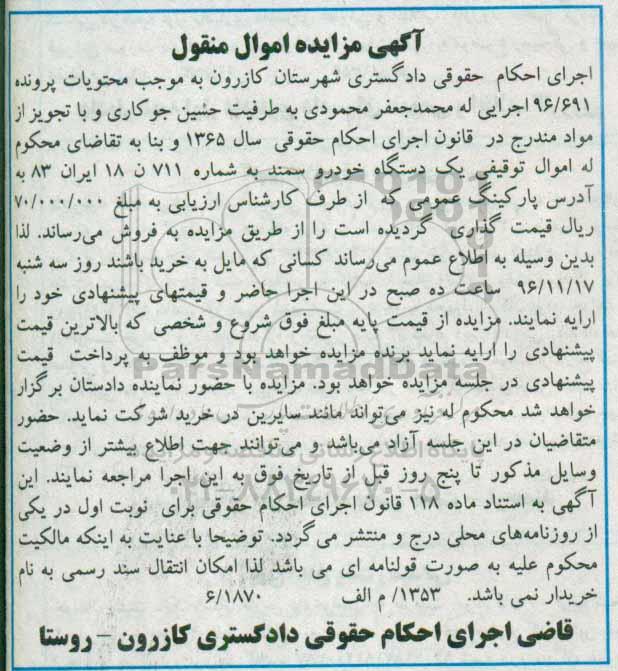 آگهی مزایده اموال منقول
اجرای احکام حقوقی دادگستری شهرستان کازرون به موجب محتویات پرونده
۹۶/۶۹۱ اجرایی له محمدجعفر محمودی به طرفیت حشین جوکاری و با تجویز از
مواد مندرج در قانون اجرای احکام حقوقی سال ۱۳۶۵ و بنا به تقاضای محکوم
له اموال توقیفی یک دستگاه خودرو سمند به شماره ۷۱۱ ن ۱۸ ایران ۸۳ به
آدرس پارکینگ عمومی که از طرف کارشناس ارزیابی به مبلغ ۷۰/۰۰۰/۰۰۰
ریال قیمت گذاری گردیده است را از طریق مزایده به فروش می‌رساند. لذا
بدین وسیله به اطلاع عموم می‌رساند کسانی که مایل به خرید باشند روز سه شنبه
۹۶/۱۱/۱۷ ساعت ده صبح در این اجرا حاضر و قیمتهای پیشنهادی خود را
ارایه نمایند. مزایده از قیمت پایه مبلغ فوق شروع و شخصی که بالاترین قیمت
پیشنهادی را ارایه نماید برنده مزایده خواهد بود و موظف به پرداخت قیمت
ParsNamadData
پیشنهادی در جلسه مزایده خواهد بود. مزایده با حضور نماینده دادستان برگزار
خواهد شد محکوم له نیز می‌تواند مانند سایرین در خرید شرکت نماید. حضور
متقاضیان در این جلسه آزاد می‌باشد و می‌توانند جهت اطلاع بیشتر از وضعیت
وسایل مذکور تا پنج روز قبل از تاریخ فوق به این اجرا مراجعه نمایند. این
آگهی به استناد ماده ۱۱۸ قانون اجرای احکام حقوقی برای نوبت اول در یکی
از روزنامه‌های محلی درج و منتشر می‌گردد. توضیحا با عنایت به اینکه مالکیت
محکوم علیه به صورت قولنامه ای می باشد لذا امکان انتقال سند رسمی به نام
خریدار نمی باشد. ۱۳۵۳/ م الف ۶/۱۸۷۰
قاضی اجرای احکام حقوقی دادگستری کازرون – روستا